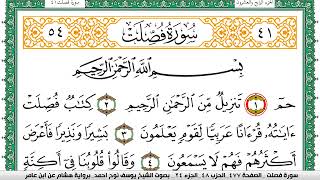 سورة فصلت ٤١
الجزء الرابع والعشرون
٥٤ سُورَةُ فُصِّلَتْ ٤١
بِسْمِ اللَّهِ الرَّحْمَٰنِ الرَّحِيمِ
حمٓ ١ تَنزِيلٌ مِّنَ الرَّحْمَٰنِ الرَّحِيمِ ٢ كِتَابٌ فُصِّلَتْ
ءَايَاتُهُۥ قُرْءَانًا عَرَبِيًّا لِّقَوْمٍ يَعْلَمُونَ ٣ بَشِيرًا وَنَذِيرًا فَأَعْرَضَ
أَكْثَرُهُمْ فَهُمْ لَا يَسْمَعُونَ ٤ وَقَالُوا قُلُوبُنَا فِي أَكِنَّةٍ
سورة فصلت . الصفحة ٤٧٧ الحزب ٤٨ الجزء ٢٤ بصوت الشيخ يوسف نوح احمد .برواية هشام عن ابن عامر